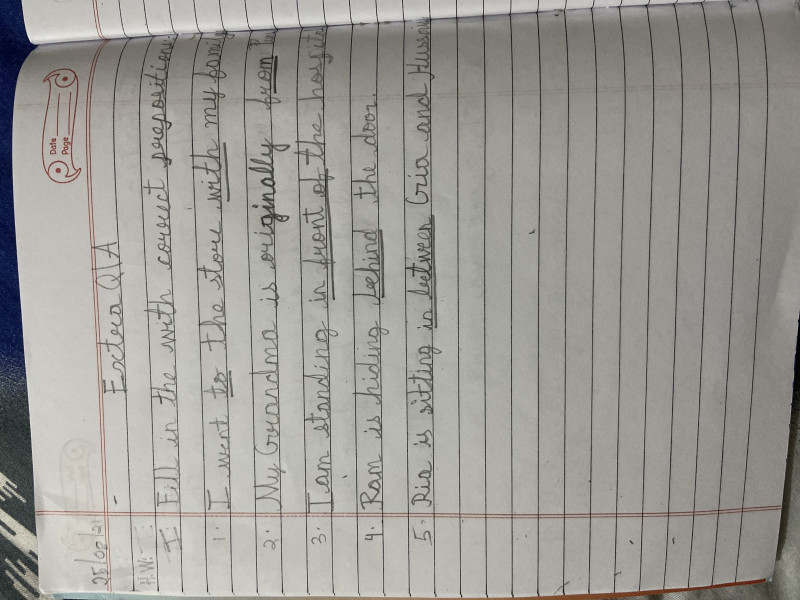 Date
Page
25/08/21
Extra Q/A
H.W:-
I Fill in the with correct prepositions:
1. I went to the store with my family
2. My Grandma is originally from
3. I am standing in front of the hospital
4. Ram is hiding behind the door.
5. Ria is sitting in between Gria and